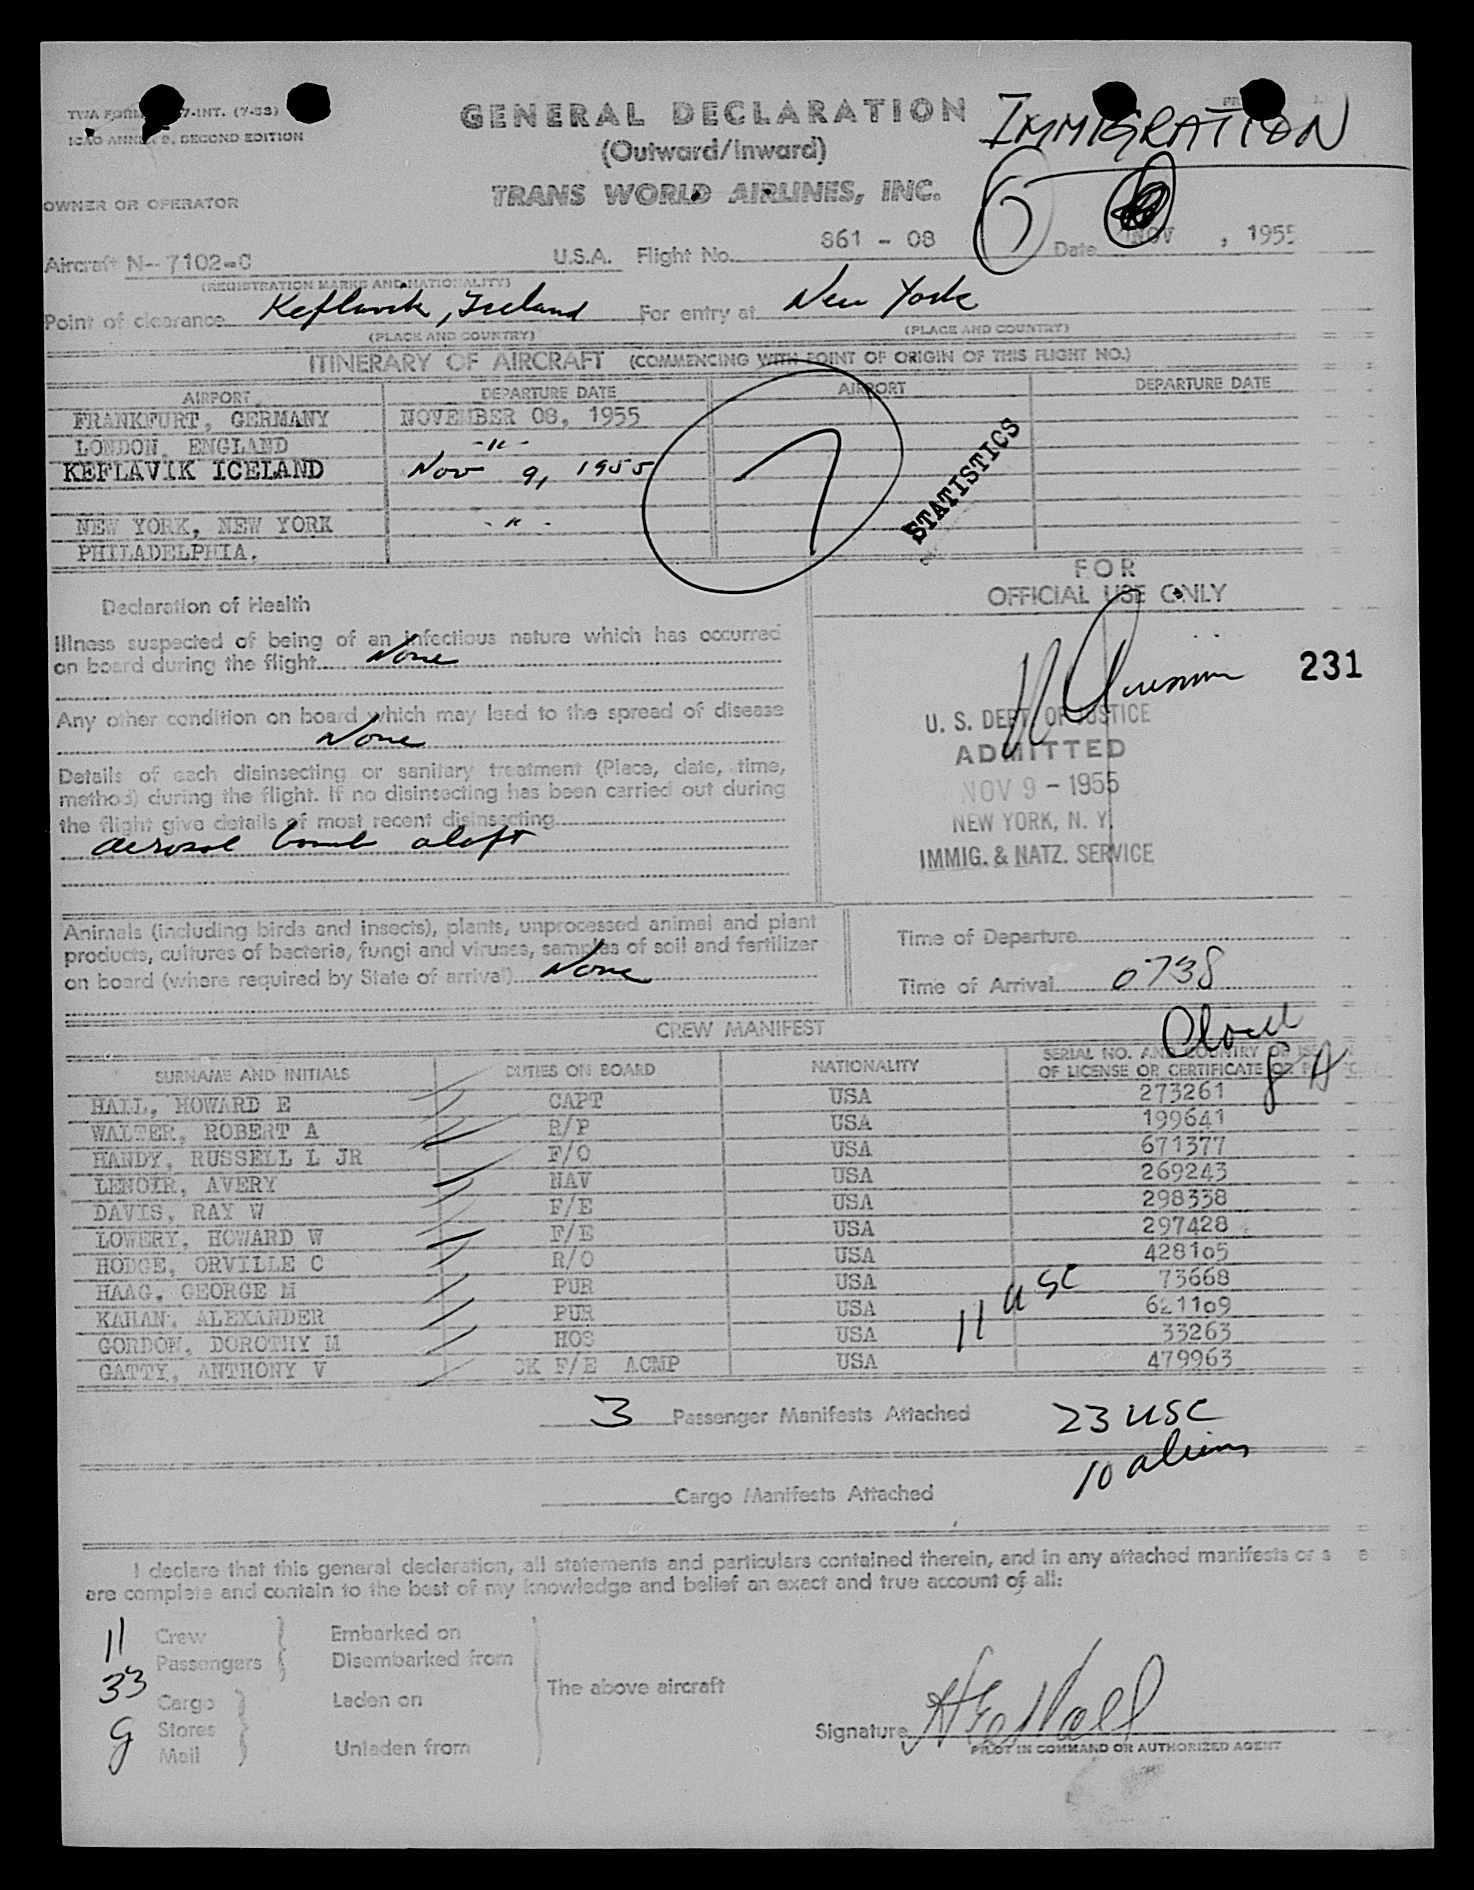 GENERAL DECLARATION
(Outward/Inward)
IMMIGRATION
TRANS WORLD AIRLINES, INC.
7-INT. (7-53)
SECOND EDITION
OWNER OR OPERATOR
Aircraft N-7102-C U.S.A. Flight No. 861 - 08 Date NOV , 1955
(REGISTRATION MARKS AND NATIONALITY)
Point of clearance Keflavik, Iceland For entry at New York
(PLACE AND COUNTRY) (PLACE AND COUNTRY)
ITINERARY OF AIRCRAFT (COMMENCING WITH POINT OF ORIGIN OF THIS FLIGHT NO.)
AIRPORT DEPARTURE DATE AIRPORT DEPARTURE DATE
FRANKFURT, GERMANY NOVEMBER 08, 1955
LONDON, ENGLAND -"-
KEFLAVIK ICELAND Nov 9, 1955
NEW YORK, NEW YORK -"-
PHILADELPHIA.
7
STATISTICS
FOR
OFFICIAL USE ONLY
Declaration of Health
Illness suspected of being of an infectious nature which has occurred
on board during the flight None
Any other condition on board which may lead to the spread of disease
None
Details of each disinsecting or sanitary treatment (Place, date, time,
method) during the flight. If no disinsecting has been carried out during
the flight give details of most recent disinsecting
aerosol bomb aloft
231
U. S. DEPT. OF JUSTICE
ADMITTED
NOV 9 - 1955
NEW YORK, N. Y.
IMMIG. & NATZ. SERVICE
Animals (including birds and insects), plants, unprocessed animal and plant
products, cultures of bacteria, fungi and viruses, samples of soil and fertilizer
on board (where required by State of arrival) None
Time of Departure
Time of Arrival 0738
CREW MANIFEST
SURNAME AND INITIALS DUTIES ON BOARD NATIONALITY SERIAL NO. AND COUNTRY OF
OF LICENSE OR CERTIFICATE OR
HALL, HOWARD E CAPT USA 273261
WALTER, ROBERT A R/P USA 199641
HANDY, RUSSELL L JR F/O USA 671377
LENOIR, AVERY NAV USA 269243
DAVIS, RAY W F/E USA 298338
LOWERY, HOWARD W F/E USA 297428
HODGE, ORVILLE C R/O USA 428105
HAAG, GEORGE M PUR USA 73668
KAHAN, ALEXANDER PUR USA 621109
GORDON, DOROTHY M HOS USA 33263
GATTY, ANTHONY V CK F/E ACMP USA 479963
11 USC
3 Passenger Manifests Attached
23 USC
10 aliens
Cargo Manifests Attached
I declare that this general declaration, all statements and particulars contained therein, and in any attached manifests or s
are complete and contain to the best of my knowledge and belief an exact and true account of all:
11 Crew Embarked on
33 Passengers Disembarked from
The above aircraft
Cargo Laden on
Stores
Mail Unladen from
Signature H E Hall
PILOT IN COMMAND OR AUTHORIZED AGENT